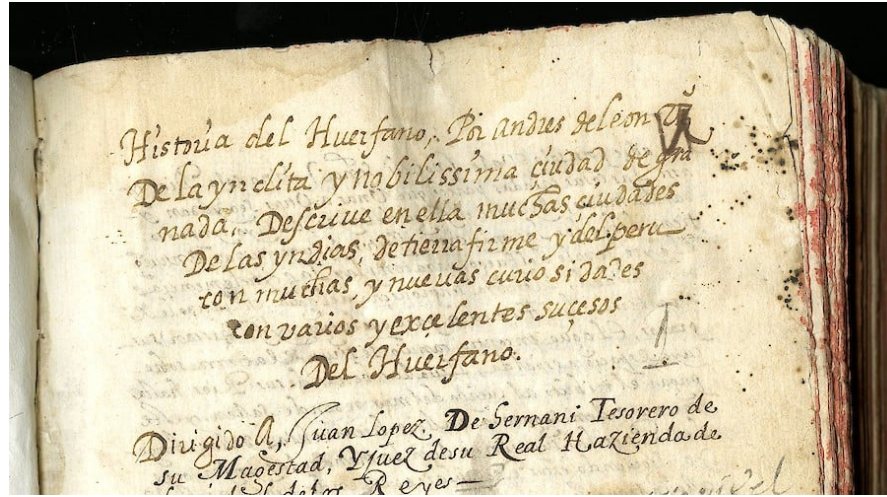 Historia del Huerfano, Por Andres deleon
Dela ynclita y nobilissima ciudad de gra
nada, Descrive en ella muchas ciudades
De las yndias, de tierra firme y del peru
con muchas, y nuevas curiosidades
con varios y excelentes sucesos
Del Huerfano.
Dirigido A, Juan Lopez De hernani Tesorero de
su Magestad, Y Juez desu Real Hazienda de
Reyes